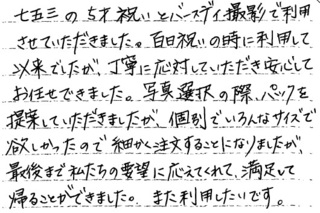 七五三の5才祝いとバースディ撮影で利用
させていただきました。百日祝いの時に利用して
以来でしたが、丁寧に応対していただき安心して
お任せできました。写真選択の際、パックを
提案していただきましたが、個別でいろんなサイズで
欲しかったので細かく注文することになりましたが、
最後まで私たちの要望に応えてくれて、満足して
帰ることができました。また利用したいです。